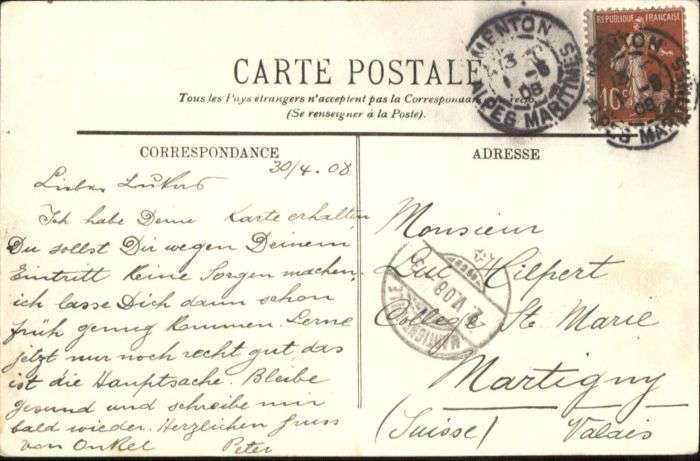 CARTE POSTALE
Tous les Pays étrangers n'acceptent pas la Correspondance au recto
(Se renseigner à la Poste).
MENTON
ALPES MARITIMES
08
REPUBLIQUE FRANÇAISE
10c
MENTON
08
CORRESPONDANCE
30/4.08
Lieber
Ich habe Deine Karte erhalten
Du sollst Dir wegen Deinem
Eintritt keine Sorgen machen,
ich lasse Dich dann schon
früh genug kommen. Lerne
jetzt nur noch recht gut, das
ist die Hauptsache. Bleibe
gesund und schreibe mir
bald wieder. Herzlichen gruss
von Onkel Peter
ADRESSE
Monsieur
Hilpert
College Ste Marie
Martigny
(Suisse) Valais